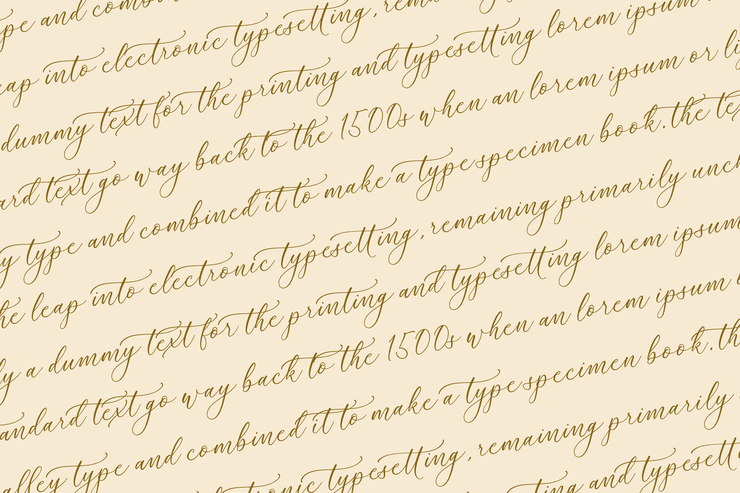 pe and com
eap into electronic typesetting, rem
dummy text for the printing and typesetting lorem ipsum
ard text go way back to the 1500s when an lorem ipsum or li
y type and combined it to make a type specimen book. the te
he leap into electronic typesetting, remaining primarily unch
ly a dummy text for the printing and typesetting lorem ipsum
andard text go way back to the 1500s when an lorem ipsum
alley type and combined it to make a type specimen book. th
tronic typesetting, remaining primarily
ting and typesett